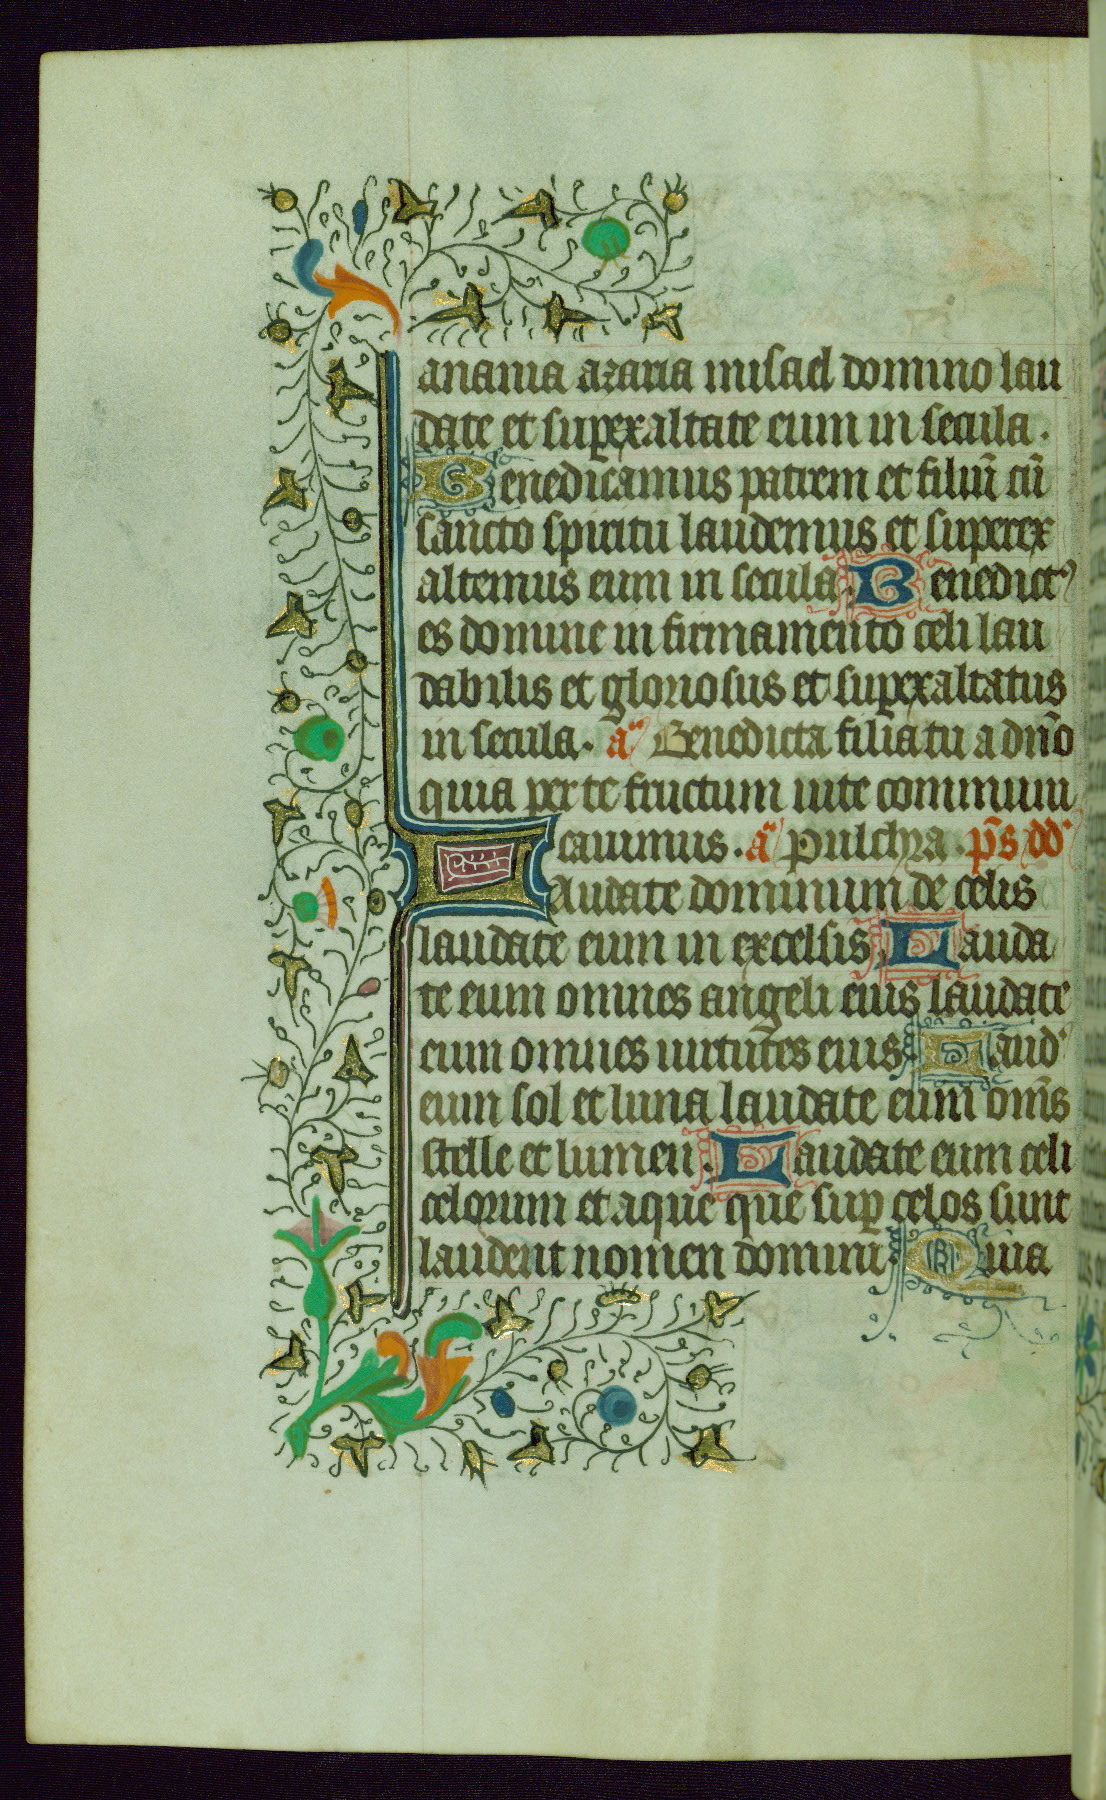 anania azaria misael domino lau
date et supexaltate eum in secula.
Benedicamus patrem et filiū cū
sancto spiritu laudemus et superex
altemus eum in secula. Benedict9
es domine in firmamento celi lau
dabilis et gloriosus et supexaltatus
in secula. añ Benedicta filia tu a dño
quia per te fructum uite communi
cauimus. añ Pulchra. p̄s dd'
Laudate dominum de celis
laudate eum in excelsis. Lauda
te eum omnes angeli eius laudate
eum omnes uirtutes eius. Laud'
eum sol et luna laudate eum om̄s
stelle et lumen. Laudate eum celi
celorum et aque que sup celos sunt
laudent nomen domini. Quia